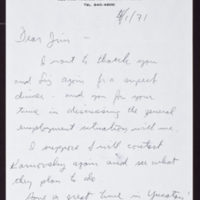 TEL. 840-4800
4/1/71
Dear Jim —
I want to thank you
and Liz again for a superb
dinner — and you for your
time in discussing the general
employment situation with me.
I suppose I will contact
Karnovsky again and see what
they plan to do.
Have a great time in